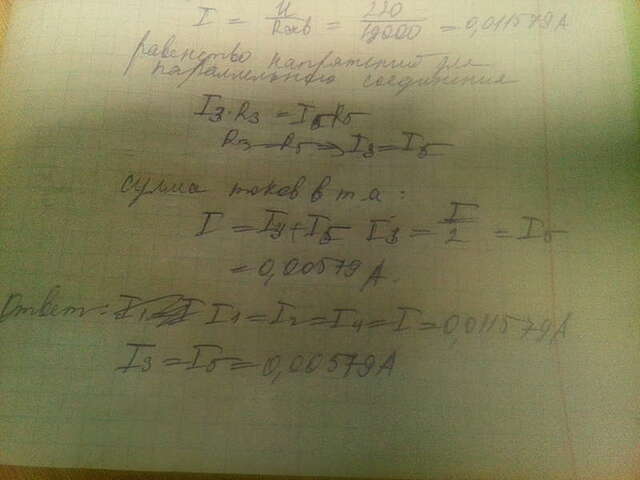 I = U/Rэкв = 220/19000 = 0,011579 А
равенство напряжений для
параллельного соединения
I3·R3 = I5R5
R3 = R5 => I3 = I5
сумма токов в т.а :
I = I3 + I5 I3 = I/2 = I5
= 0,00579 А.
Ответ: I1 = I2 = I4 = I = 0,011579 А
I3 = I5 = 0,00579 А